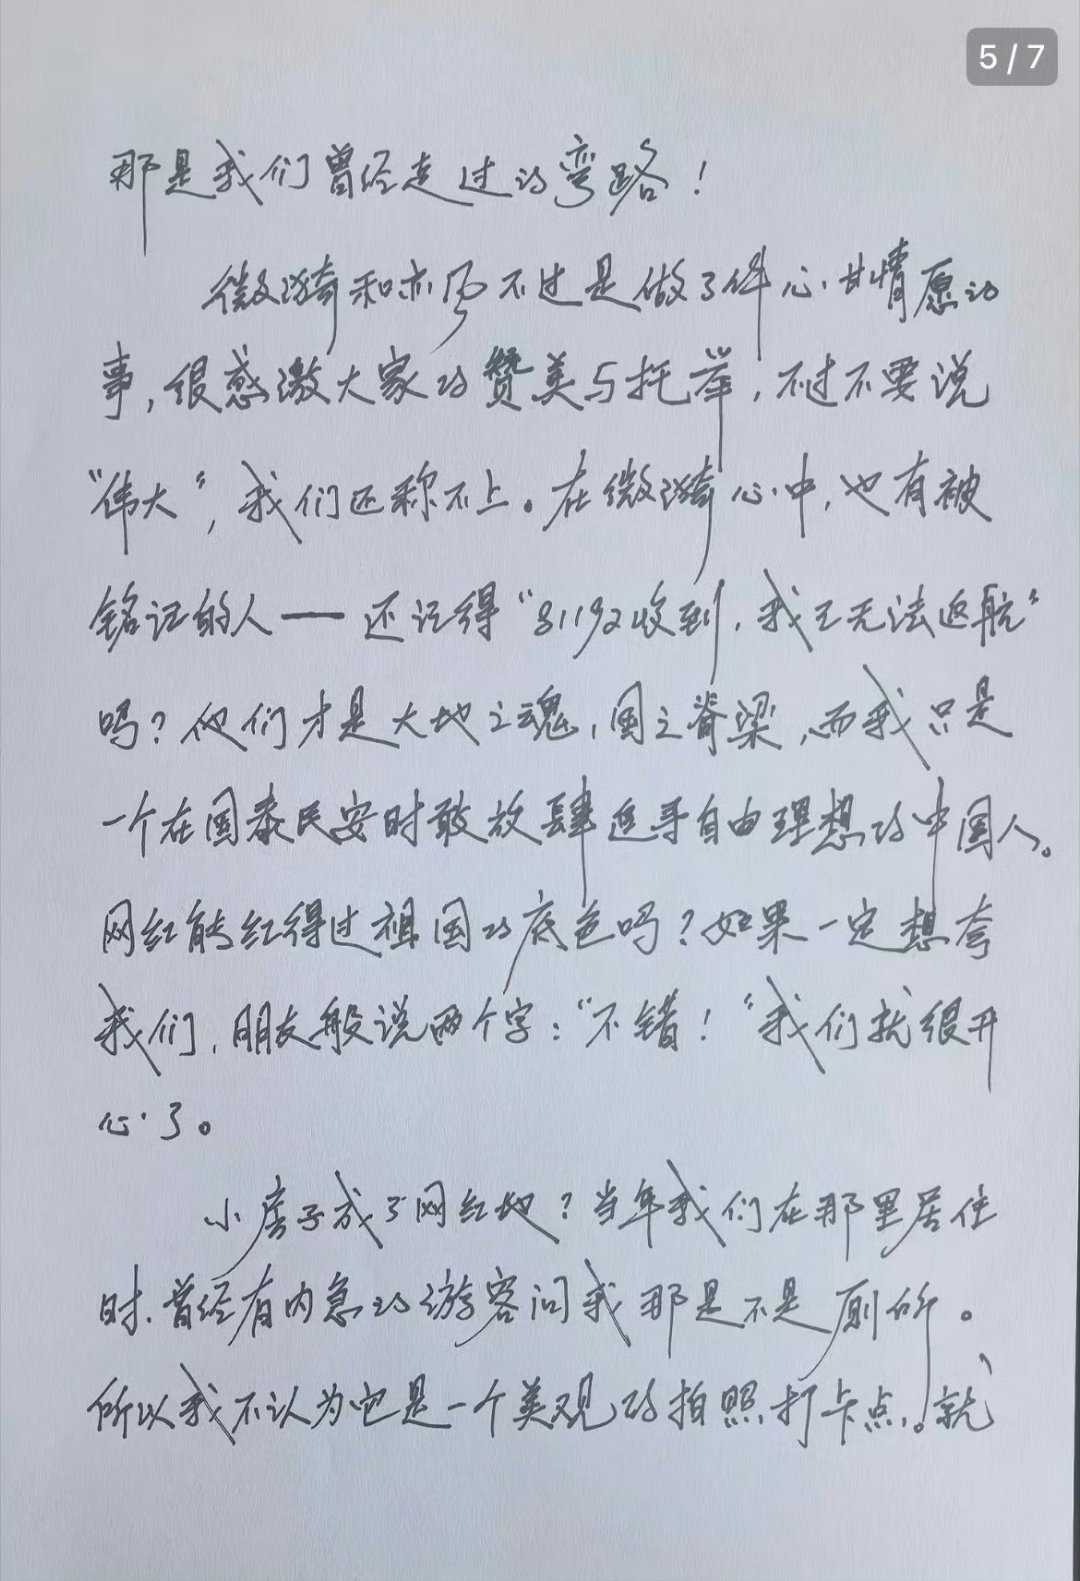 5/7
那是我们曾经走过的弯路！
微漪和亦风不过是做了件心甘情愿的
事，很感激大家的赞美与托举，不过不要说
“伟大”，我们还称不上。在微漪心中，也有被
铭记的人——还记得“81192收到，我已无法返航”
吗？他们才是大地之魂，国之脊梁，而我只是
一个在国泰民安时敢放肆追寻自由理想的中国人。
网红能红得过祖国的底色吗？如果一定想夸
我们，朋友般说两个字：“不错！”我们就很开
心了。
小房子成了网红地？当年我们在那里居住
时，曾经有内急的游客问我那是不是厕所。
所以我不认为它是一个美观的拍照打卡点。就